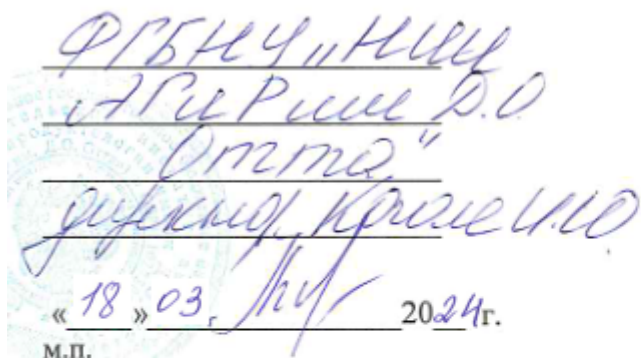 ФГБНУ „НИИ
АГиР им Д.О
Отта"
директор, Коган И.Ю
« 18 » 03. 2024г.
м.п.